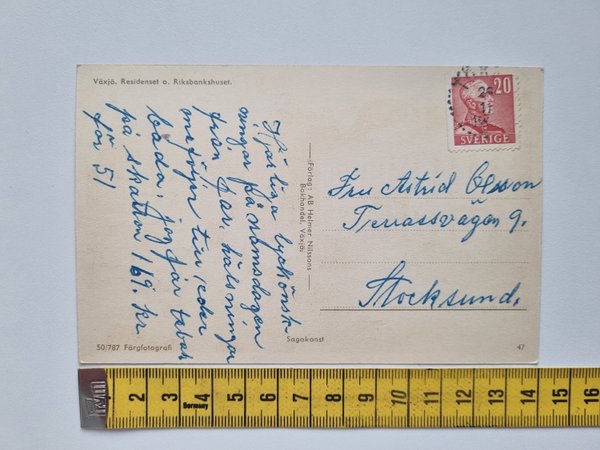 Växjö. Residenset o. Riksbankshuset.
20
SVERIGE
Hjärtliga lyckönsk-
ningar på namnsdagen
från Far, hälsningar
från till eder
båda, jag får tabat
på skatten 169. kr
för 51
Förlag: AB Helmer Nilssons
Bokhandel, Växjö.
Fru Astrid Olsson
Terrassvägen 9.
Stocksund.
50/787 Färgfotografi
Sagakonst
47
2 3 4 5 6 7 8 9 10 11 12 13 14 15 16
Germany